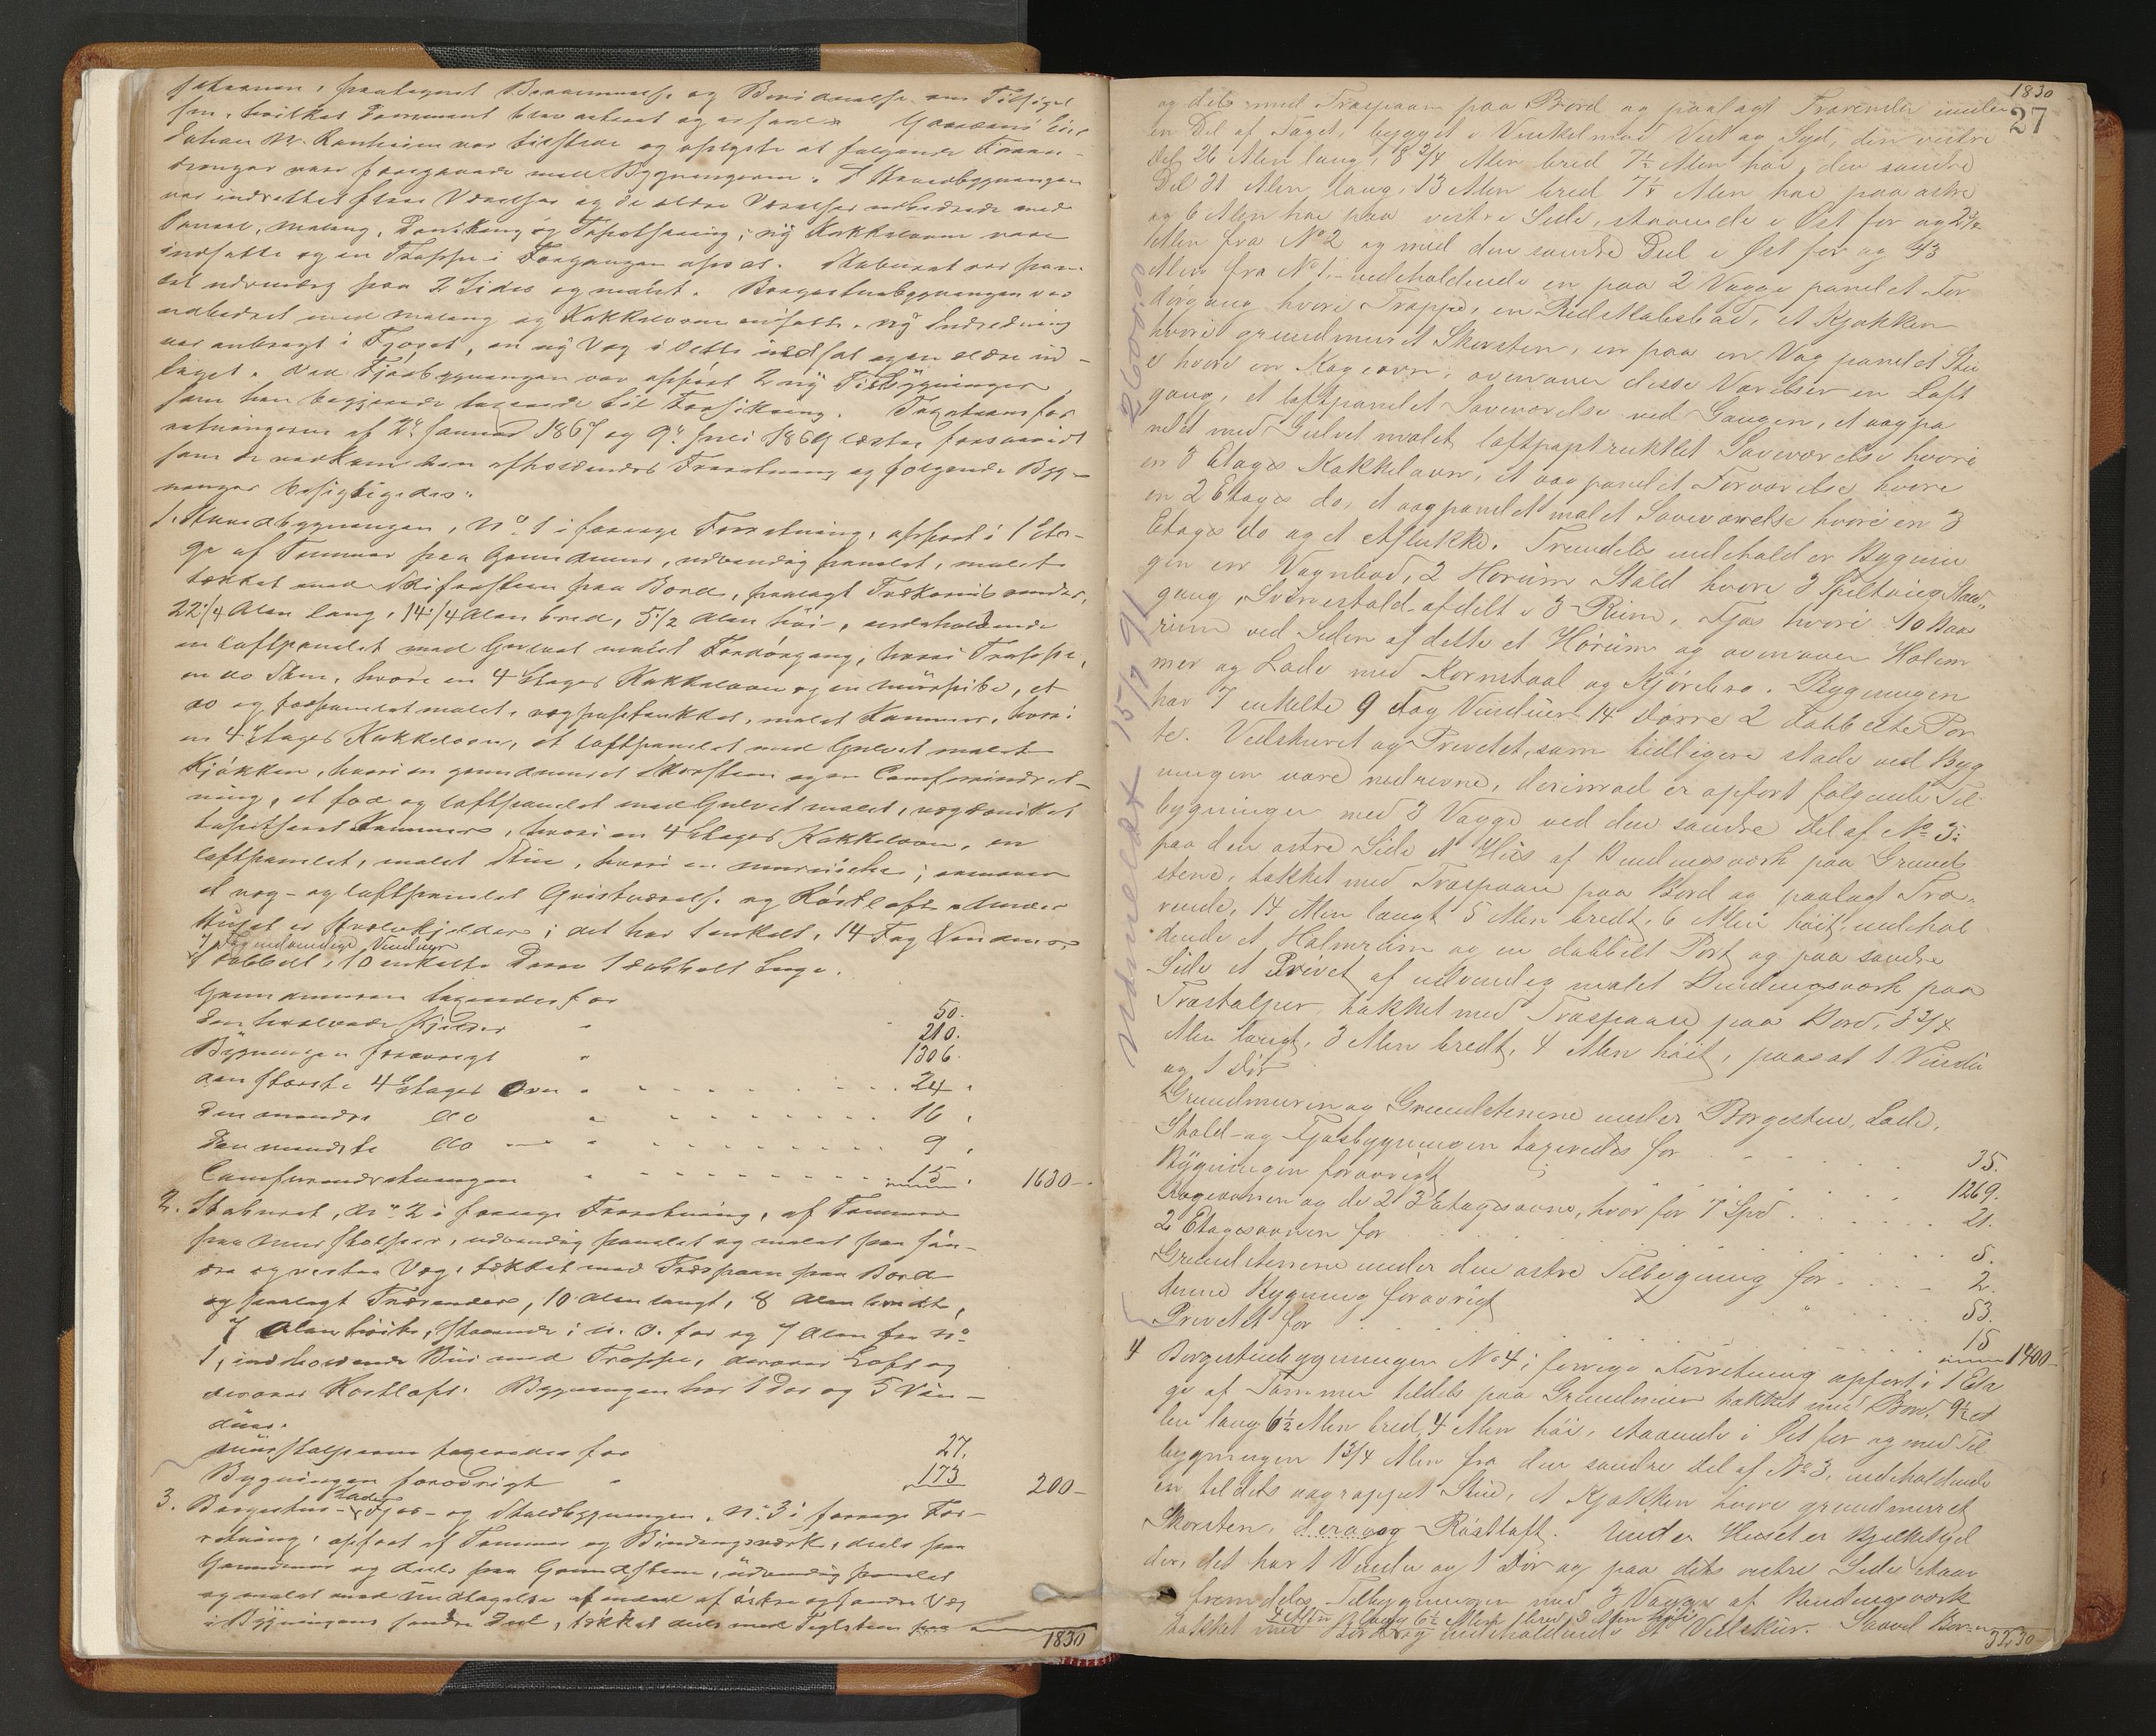 paategnet og om
hvilket Document blev og Gaardens Eier
Johan M. Ranheim var tilstede og oplyste at følgende Foran-
dringer vare foregaaede med Bygningerne. I Hovedbygningen
var indrettet flere Værelser og de ældre Værelser udbedrede med
Panel, Maling, og ny Kakkelovn vare
indsatte og en Trappe i Forgangen opsat. Staburet var pane
let udvendig paa 2 Sider og malet. Borgestuebygningen var
udbedret med Maling og Kakkelovn indsatte, ny Indredning
var anbragt i Fjøset, en ny Væg i dette indsat og en ældre ud-
taget. Ved Fjøsbygningen var opført 2 ny Tilbygninger
som han begjærede taxerede til Forsikring. Taxationsfor
retningerne af 2den Januar 1867 og 9de Juli 1869
som vedkommende Forretning og følgende Byg-
ninger besigtigedes:
1. Hovedbygningen, No 1 i forrige Forretning, opført i 1 Eta-
ge af Tømmer paa Grundmur, udvendig panelet, malet
tækket med Skifersteen paa Bord, paalagt
22 1/4 Alen lang, 14 1/4 Alen bred, 5 1/2 Alen høi, indeholdende
en loftpanelet med Gulvet malet Fordørgang, hvori Trappe,
en do Stue, hvori en 4 Etages Kakkelovn og en Murpibe, et
do og panelet malet, malet Kammer, hvori
en 4 Etages Kakkelovn, et loftpanelet med Gulvet malet
Kjøkken, hvori en grundmuret Skorsten og en Comfurindret-
ning, et og loftpanelet med Gulvet malet,
Kammer, hvori en 4 Etages Kakkelovn, en
loftpanelet, malet Stue, hvori en ovenover
et væg- og loftpanelet Qvistværelse og Røstloft. Under
Huset er Kjelder; det har 14 Fag Vinduer
7 Fag indvendige Vinduer
1 dobbelt, 10 enkelte Døre 1 dobbelt Luge.
Grundmuren taxeredes for 50.
Den hvælvede Kjelder " 210.
Bygningen forøvrigt " 1306.
den største 4 Etages Ovn " 24.
Den mindre do " 16.
Den mindste do " 9.
Comfurindretningen " 15. 1630 -
2. Staburet, No 2 i forrige Forretning, af Tømmer
paa Murstolper, udvendig panelet og malet paa søn-
dre og vestre Væg, tækket med Træspaan paa Bord
og paalagt Trærender, 10 Alen langt, 8 Alen bredt,
7 Alen høit, staaende i N. O. for og 7 Alen fra No
1, indeholdende Bur med Trappe, derover Loft og
derover Røstloft. Bygningen har 1 Dør og 5 Vin-
duer.
Murstolperne taxeredes for 27.
Bygningen forøvrigt " 173 200 -
3. Borgestue- Lade Fjøs- og Staldbygningen, No 3 i forrige For-
retning, opført af Tømmer og Bindingsværk, deels paa
Grundmur og deels paa Grundsteen, udvendig panelet
og malet med Undtagelse af endeel af østre og søndre Væg
i Bygningens søndre Deel, tækket deels med Teglsteen paa
1830
1830
27
og dels med Træspaan paa Bord og paalagt Trærender under
en Del af Taget, bygget i Vinkel mod Vest og Syd, den vestre
Del 26 Alen lang, 8 3/4 Alen bred 7 1/2 Alen høi, den søndre
Del 31 Alen lang, 13 Alen bred 7 1/2 Alen høi paa østre
og 6 Alen høi paa vestre Side, staaende i Øst for og
Alen fra No 2 og med den søndre Del i Øst for og 43
Alen fra No 1, indeholdende en paa 2 Vægge panelet For
dørgang hvori Trappe, en Redskabsbod, et Kjøkken
hvori grundmuret Skorsten, en paa en Væg panelet Stu
e hvori en Kogeovn, ovenover disse Værelser en Loft
gang, et loftpanelet Soveværelse ved Gangen, et vægpa
nelet med Gulvet malet, loftpaptrukket Soveværelse hvori
en 3 Etages Kakkelovn, et vægpanelet Forværelse hvori
en 2 Etages do, et vægpanelet malet Soveværelse hvori en 3
Etages do og et Aflukke. Fremdeles indehold er Bygnin
gen en Vognbod, 2 Hørum Stald hvori 3 Spiltoug,
gang, Svinestald afdelt i 3 Rum, Fjøs hvori 10 Baas
rum ved Siden af dette et Hørum og ovenover Halm
mer og Lade med Kornstaal og Kjørebro. Bygningen
har 7 enkelte 9 Fag Vinduer 14 Dørre 2 dobbelte Por
te. Vedskuret og Privetet, som tidligere stode ved Byg
ningen vare nedrevne, derimod er opført følgende Til
bygninger med 3 Vægge ved den søndre Del af No 3:
paa den østre Side et Hus af Bindingsværk paa Grund
stene, tækket med Træspaan paa Bord og paalagt Træ-
rende, 14 Alen langt 5 Alen bredt, 6 Alen høit, indehol
dende et Halmrum og en dobbelt Port og paa søndre
Side et Privet af udvendig malet Bindingsværk paa
Træstolper, tækket med Træspaan paa Bord, 3 3/4
Alen langt, 3 Alen bredt, 4 Alen høit, paasat 1 Vindu
og 1 Dør
Grundmuren og Grundstenene under Borgestue, Lade,
Stald- og Fjøsbygningen taxeredes for 35.
Bygningen forøvrigt 1269.
Kogeovnen og de 2 3 Etagesovne, hver for 7 Spd 21.
2 Etagesovnen for 5.
Grundstenene under den østre Tilbygning for 2.
denne Bygning forøvrigt " 53.
Privetet for 15 1400 -
4 Borgestuebygningen No 4 i forrige Forretning opført i 1 Eta
ge af Tømmer tildels paa Grundmur tækket med Bord, 9 1/2 A
len lang 6 1/2 Alen bred, 4 Alen høi, staaende i Øst for og med Til
bygningen 1 3/4 Alen fra den søndre Del af No 3, indeholdende
en tildels vægrappet Stue, et Kjøkken hvori grundmurret
Skorsten, derover Røstloft. Under Huset er Bjelkekjel
der, det har 1 Vindu og 1 Dør og paa dets vestre Side staar
fremdeles Tilbygningen med 3 Vægge af Bindingsværk
4 Alen lang 6 1/2 Alen bred, 3 Alen høi
tækket med Bord og indeholdende et Vedskur. Saavel
3230
Udmeldt 15/7 91 2600.00